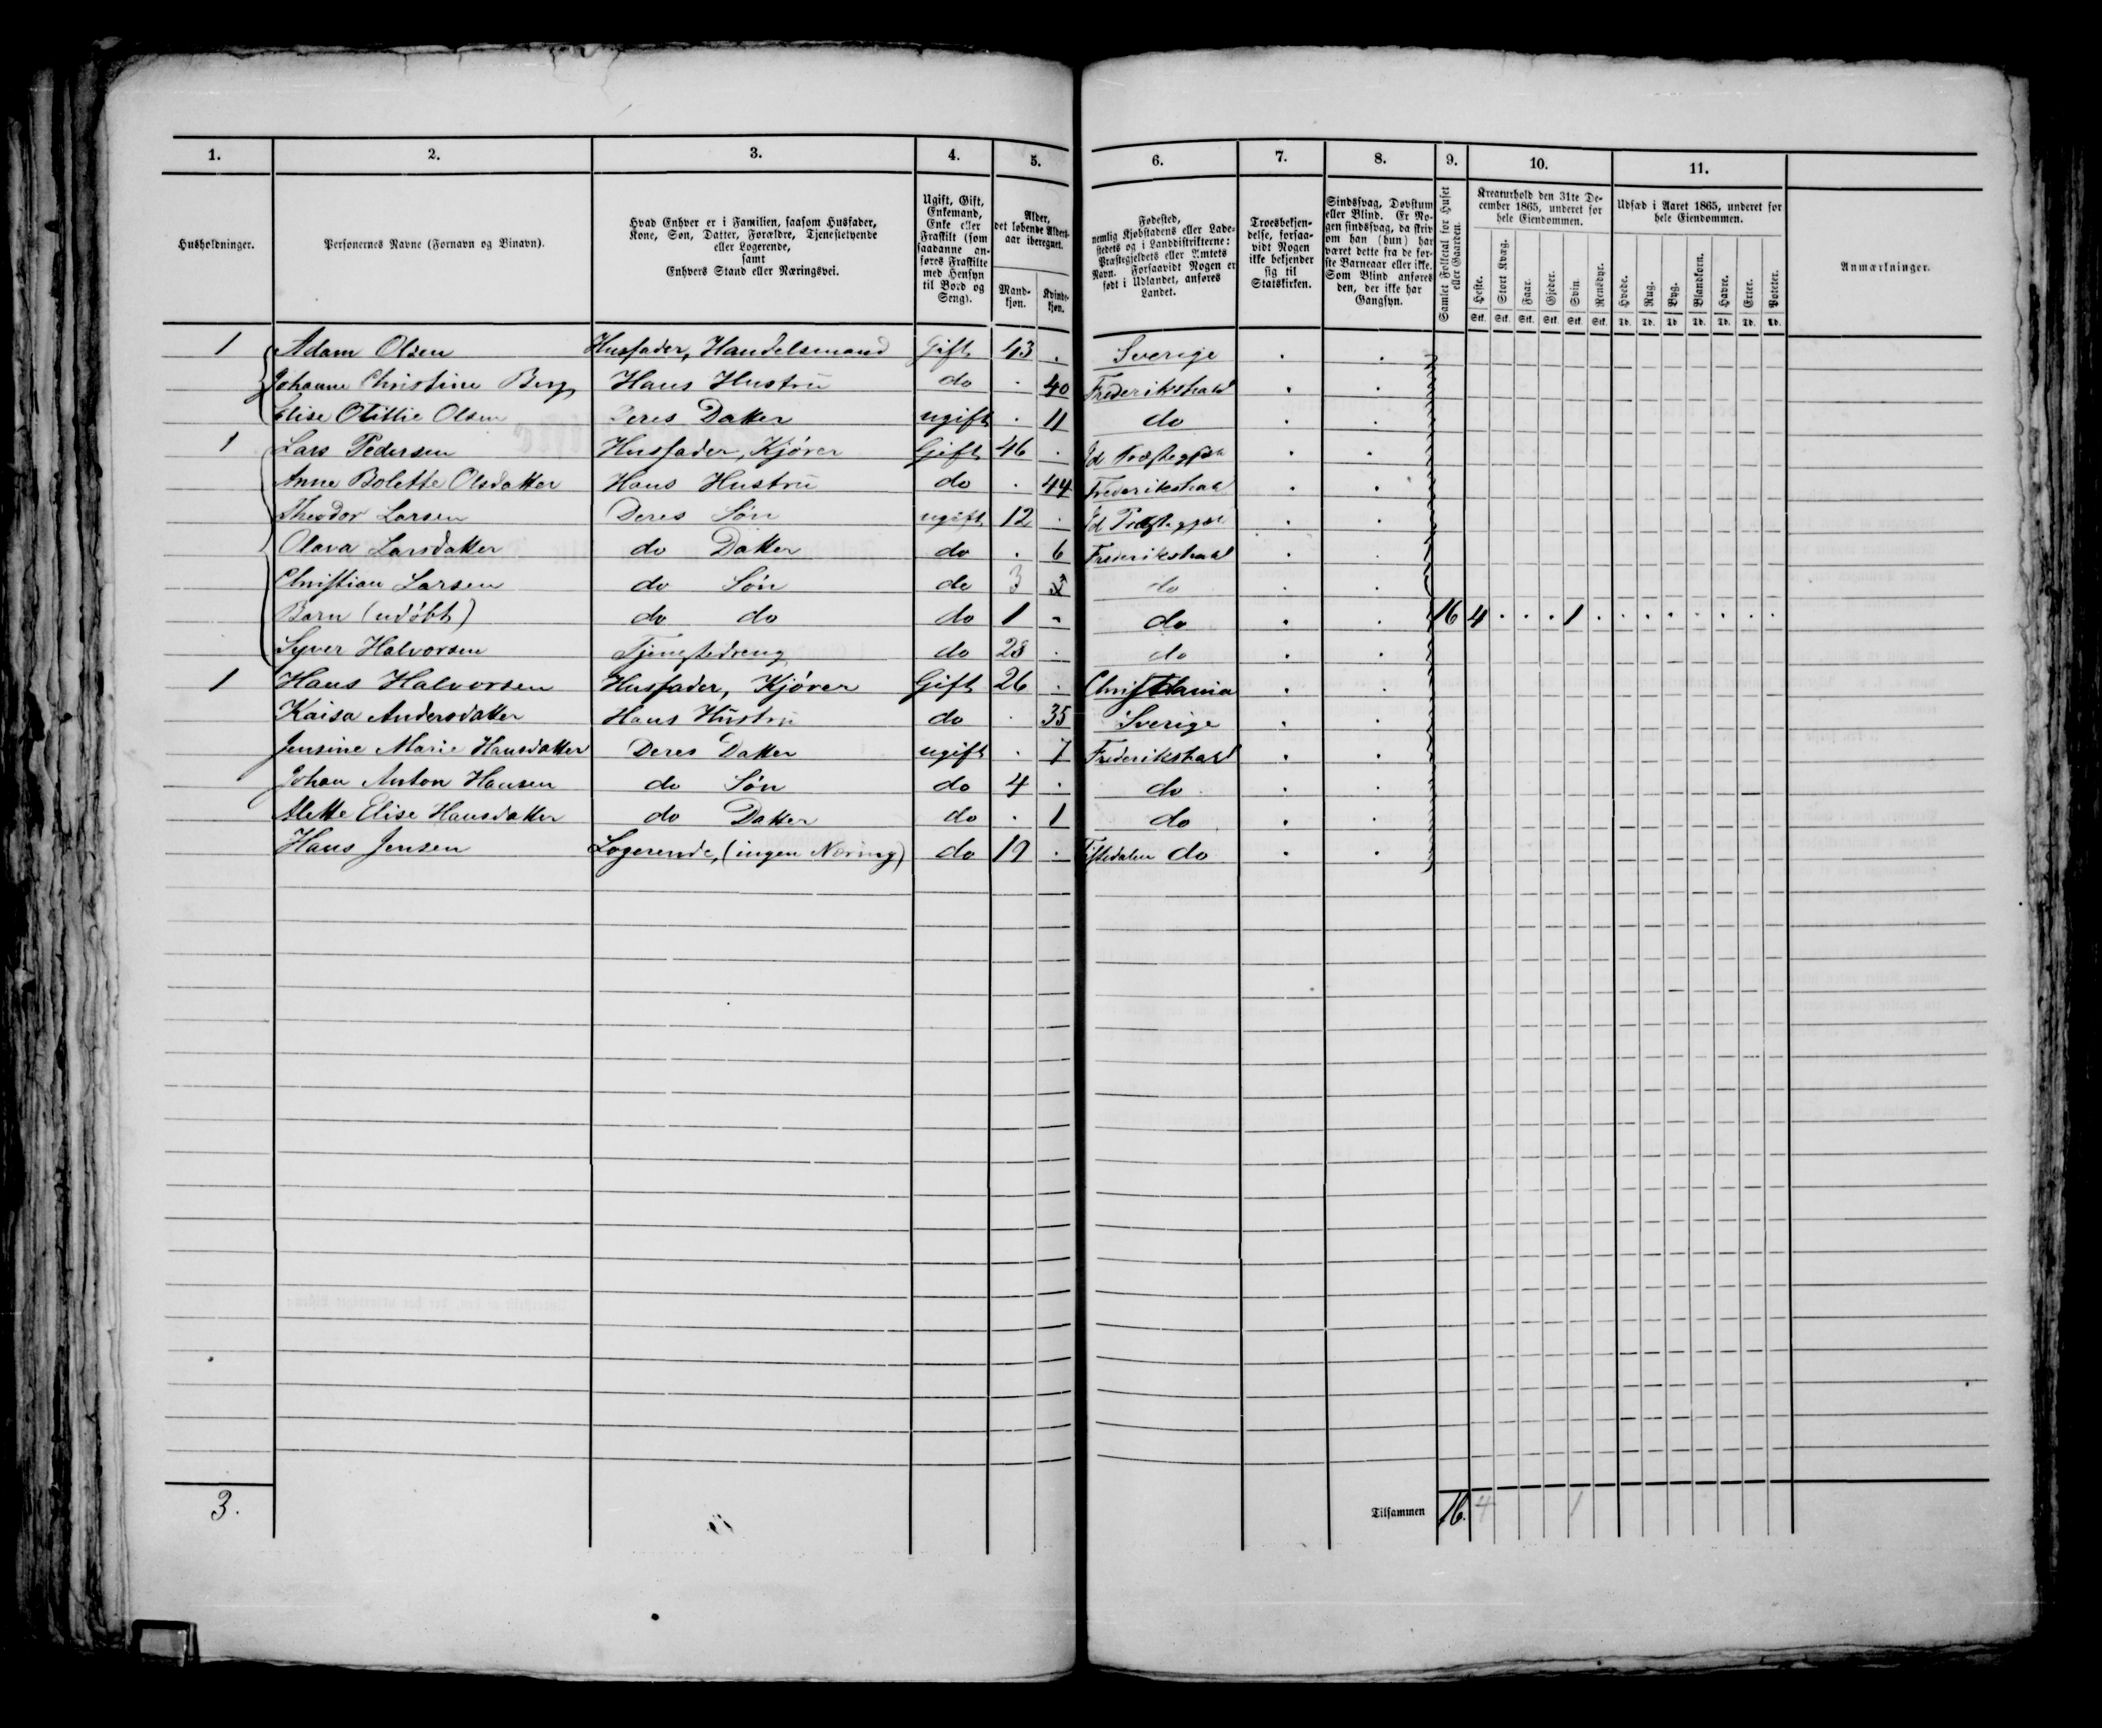 1. 2. 3. 4. 5. 6. 7. 8. 9. 10. 11.
Husholdninger.
Personernes Navne (Fornavn og Binavn).
Hvad Enhver er i Familien, saasom Husfader,
Kone, Søn, Datter, Forældre, Tjenestetyende
eller Logerende,
samt
Enhvers Stand eller Næringsvei.
Ugift, Gift,
Enkemand,
Enke eller
Fraskilt (som
saadanne an-
føres Fraskilte
med Hensyn
til Bord og
Seng).
Alder,
det løbende Alders-
aar iberegnet.
Mand-
kjøn.
Kvinde-
kjøn.
Fødested,
nemlig Kjøbstadens eller Lade-
stedets og i Landdistrikterne:
Præstegjeldets eller Amtets
Navn. Forsaavidt Nogen er
født i Udlandet, anføres
Landet.
Troesbekjen-
delse, forsaa-
vidt Nogen
ikke bekjender
sig til
Statskirken.
Sindssvag, Døvstum
eller Blind. Er No-
gen sindssvag, da skriv
om han (hun) har
været dette fra de før-
ste Barneaar eller ikke.
Som Blind anføres
den, der ikke har
Gangsyn.
Samlet Folketal for Huset
eller Gaarden.
Kreaturhold den 31te De-
cember 1865, underet for
hele Eiendommen.
Heste. Stort Kvæg. Faar. Gjeder. Svin. Rensdyr.
Stk. Stk. Stk. Stk. Stk. Stk.
Udsæd i Aaret 1865, underet for
hele Eiendommen.
Hvede. Rug. Byg. Blandkorn. Havre. Erter. Poteter.
Td. Td. Td. Td. Td. Td. Td.
Anmærkninger.
1 Adam Olsen Husfader, Handelsmand Gift 43 . Sverige . .
Johanne Christine Berg Hans Hustru do . 40 Frederikshald . .
Elise Otillie Olsen Deres Datter ugift . 11 do . .
1 Lars Pedersen Husfader, Kjører Gift 46 . Id Præstegjeld . .
Anne Bolette Olsdatter Hans Hustru do . 44 Frederikshald . .
Theodor Larsen Deres Søn ugift 12 . Id Præstegjeld . .
Olava Larsdatter do Datter do . 6 Frederikshald . .
Christian Larsen do Søn do 3 do . .
Barn (udøbt) do do do 1 - do . . 16 4 . . . 1 . . . . . . . .
Syver Halvorsen Tjenestedreng do 28 . do . .
1 Hans Halvorsen Husfader, Kjører Gift 26 . Christiania . .
Kaisa Andersdatter Hans Hustru do . 35 Sverige . .
Jensine Marie Hansdatter Deres Datter ugift . 7 Frederikshald . .
Johan Anton Hansen do Søn do 4 . do . .
Alette Elise Hansdatter do Datter do . 1 do . .
Hans Jensen Logerende, (ingen Næring) do 19 . Tistedalen do . .
3.
Tilsammen 16. 4 1